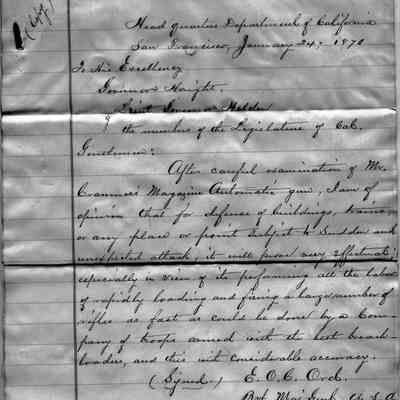 (Copy)
Head quarters Department of California
San Francisco, January 24, 1870
To His Excellency
Governor Haight.
& Lieut Governor Holden
the members of the Legislature of Cal.
Gentlemen:
After careful examination of Mr.
Magazine Automatic gun, I am of
opinion that for defense of buildings, trains
or any place or point subject to Sudden and
unexpected attack, it will prove very effectual;
especially in view of its performing all the labor
of rapidly loading and firing a large number of
rifles as fast as could be done by a Com-
pany of troops armed with the best breech-
loaders, and this with considerable accuracy.
(Signed) E. O. C. Ord.
Brt Maj Genl U. S. A.